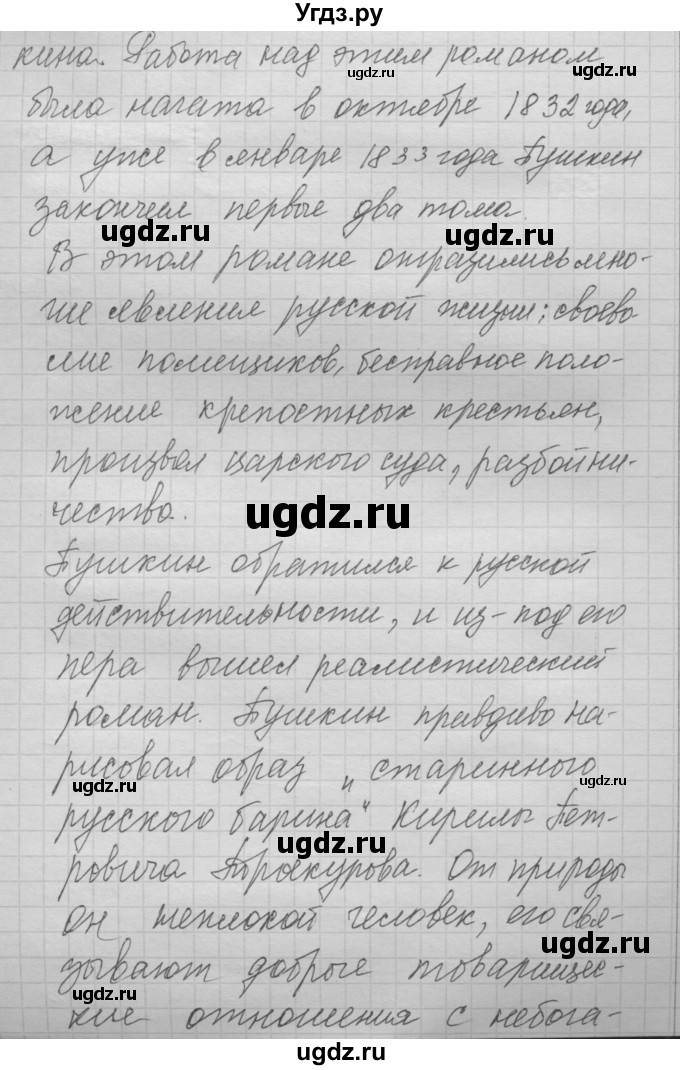 Угдз.ру
кина. Работа над этим романом
ugdz.ru
ugdz.ru
была начата в октябре 1832 года,
а уже в январе 1833 года Пушкин
закончил первые два тома.
ugdz.ru
ugdz.ru
В этом романе отразились мно-
гие явления русской жизни: своево
лие помещиков, бесправное поло-
ugdz.ru
жение крепостных крестьян,
произвол царского суда, разбойни-
чество.
ugdz.ru
Пушкин обратился к русской
действительности, и из-под его
ugdz.ru
пера вышел реалистический
роман. Пушкин правдиво на-
рисовал образ „старинного
ugdz.ru
ugdz.ru
русского барина“ Кирилы Пет-
ugdz.ru
ровича Троекурова. От природы
он неплохой человек, его свя-
ugdz.ru
зывают доброые товарищес-
ugdz.ru
кие отношения с небога-
ugdz.ru
ugdz.ru